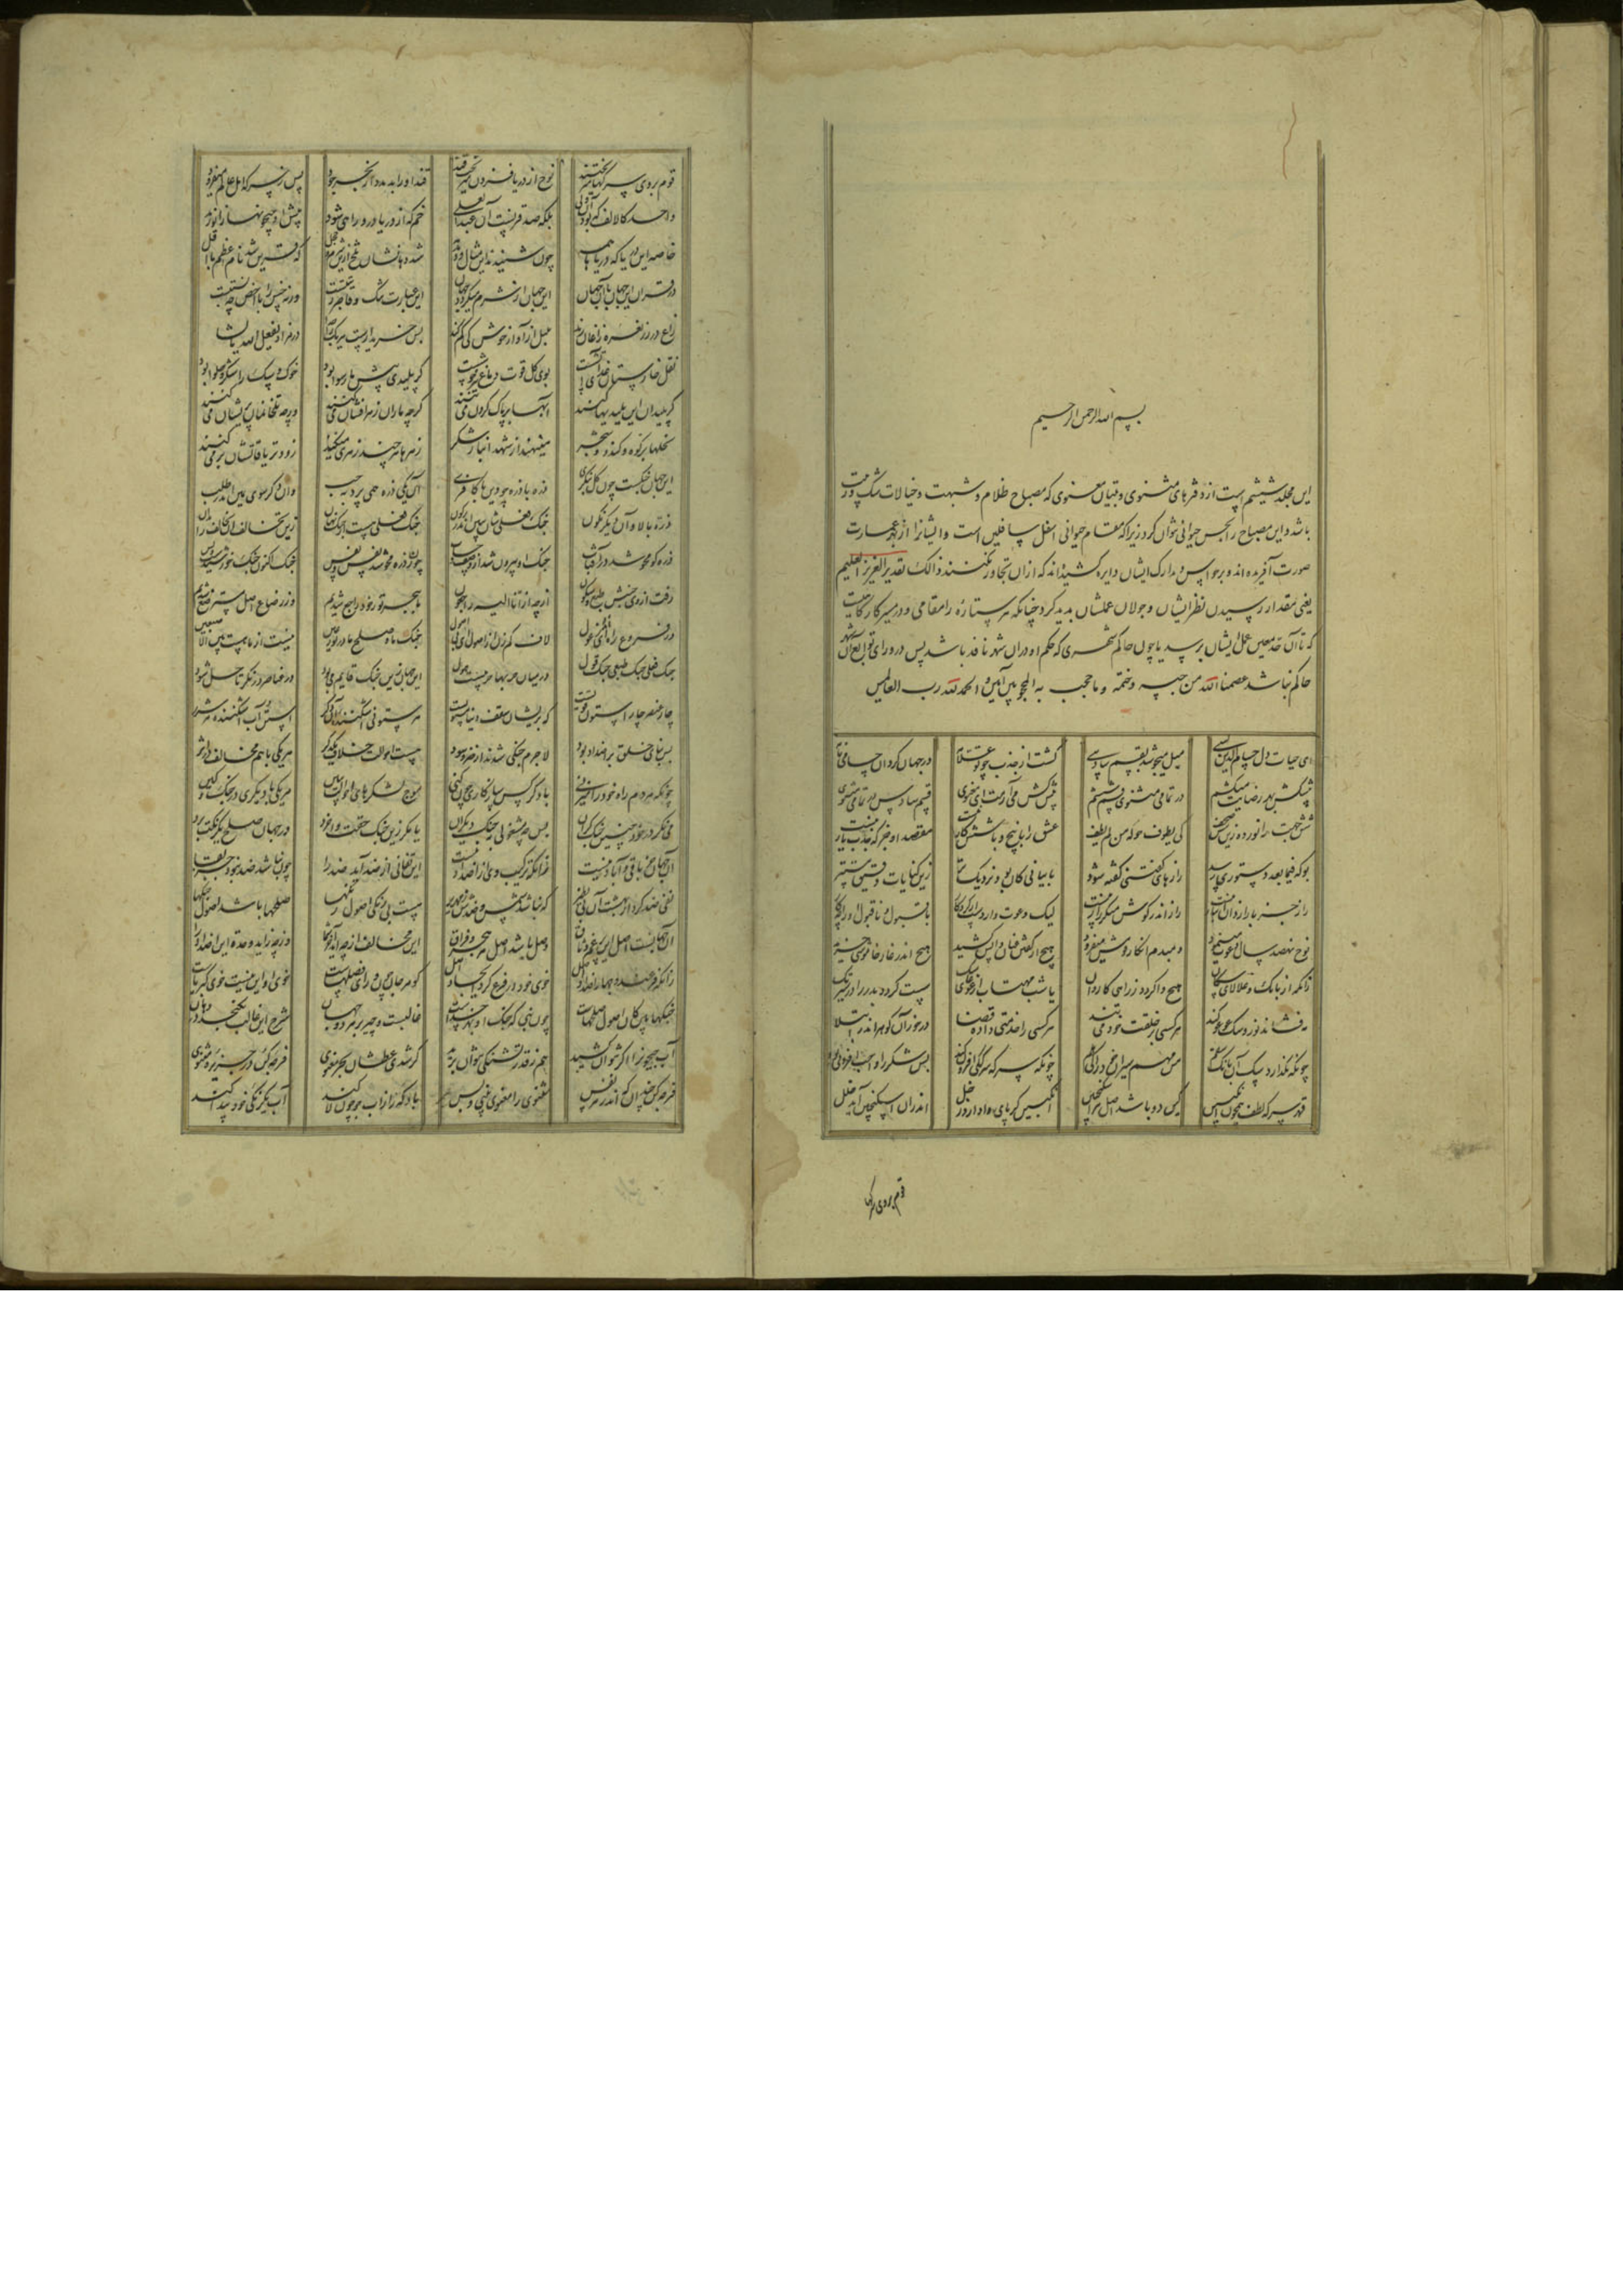 بسم الله الرحمن الرحیم
این مجلد ششیم است از دفترهای مثنوی و تبیان معنوی که مصباح ظلام و شبهت و خیالات شک و ریبت
باشد و این مصباح را بحس حیوانی نتوان کرد زیرا که مقام حیوانی اسفل سافلین است و ایشانرا از بهر عمارت
صورت آفریده اند و بر حواس و مدارک ایشان دایره کشیده اند که از آن تجاوز نکنند ذالک تقدیر العزیز العلیم
یعنی مقدار رسیدن نظر ایشان و جولان عملشان بدید کرد چنانکه هر ستاره را مقامی و در سیر کار
که تا آن حد معین عمل ایشان برسد یا چون حاکم شهری که حکم او در آن شهر نافذ باشد پس در ورای توابع آن شهر
حاکم نباشد عصمنا الله من حبسه و ختمه و ما حجب به المحجوبین آمین و الحمد لله رب العالمین
ای حیات دل حسام الدین بسی میل میجوشد بقسم سادسی گشت از جذب چو تو علامه در جهان گردان حسامی نامه
پیشکش بهر رضایت میکشم در تمامی مثنوی قسم ششم پیش کش می آرمت ای معنوی قسم سادس در تمام مثنوی
شش جهت را نور ده زین شش صحف کی یطوف حوله من لم یطف عشق را با پنج و با شش کار نیست مقصد او جز که جذب یار نیست
بوکه فیما بعد دستوری رسد رازهای گفتنی گفته شود با بیانی کان بود نزدیکتر زین کنایات دقیق مستتر
راز جز با رازدان انباز نیست راز اندر گوش منکر راز نیست لیک دعوت واردست از کردگار با قبول و ناقبول او را چکار
نوح نهصد سال دعوت مینمود دمبدم انکار قومش میفزود هیچ از گفتن عنان واپس کشید هیچ اندر غار خاموشی خزید
زانکه از بانگ و علالای سگان هیچ واگردد ز راهی کاروان یا شب مهتاب از غوغای سگ سست گردد بدر را در سیر تگ
مه فشاند نور و سگ عوعو کند هر کسی بر خلقت خود می تند هر کسی را خدمتی داده قضا در خور آن گوهر اندر ابتلا
چونکه نگذارد سگ آن بانگ سقم من مهم سیران خود را کی هلم چونکه سرکه سرکگی افزون کند پس شکر را واجب افزونی بود
قهر سرکه لطف همچون انگبین کین دو باشد اصل هر اسکنجبین انگبین گر پای وادارد ز خل اندر آن اسکنجبین آید خلل
قوم بروی سرکه
قوم بروی سرکها میریختند نوح را از دریا فزون میریخت قند قند او را بد مدد از بحر جود پس ز سرکه اهل عالم میفزود
واحد کالالف که بود آن ولی بلکه صد قرنست آن عبد العلی خم که از دریا درو راهی شود پیش او جیحونها زانو زند
خاصه این دریا که دریاها همه چون شنیدند این مثال و دمدمه شد دهانشان تلخ ازین شرم و خجل که قرین شد نام اعظم با اقل
در قران این جهان با آن جهان این جهان از شرم میگردد جهان این عبارت تنگ و قاصر رتبتست ورنه خس را با اخص چه نسبتست
زاغ در رز نعره زاغان زند بلبل از آواز خوش کی کم کند پس خریدارست هر یک را جدا در مراد یفعل الله ما یشا
نقل خارستان غذای آتش است بوی گل قوت دماغ سرخوشست گر پلیدی پیش ما رسوا بود خوک و سگ را شکر و حلوا بود
گر پلیدان این پلیدیها کنند آبها بر پاک کردن می تنند گرچه ماران زهرافشان می کنند ورچه تلخان مان پریشان می کنند
نحلها بر کوه و کندو و شجر مینهند از شهد انبار شکر زهرها هرچند زهری میکنند زود تریاقاتشان بر می کنند
این جهان جنگست چون کل بنگری ذره با ذره چو دین با کافری آن یکی ذره همی پرد به چپ وان دگر سوی یمین اندر طلب
ذره بالا و آن دیگر نگون جنگ فعلی شان ببین اندر رکون جنگ فعلی هست از جنگ نهان زین تخالف آن تخالف را بدان
ذره کو محو شد در آفتاب جنگ او بیرون شد از وصف و حساب چون ز ذره محو شد نفس و نفس جنگ اکنون جنگ خورشیدست و بس
رفت از وی جنبش طبع و سکون از چه از انا الیه راجعون ما ببحر تو ز خود راجع شدیم وز رضاع اصل مسترضع شدیم
در فروع راه ای مانده ز غول لاف کم زن از اصول ای بی اصول جنگ ما و صلح ما در نور عین نیست از ما هست بین الاصبعین
جنگ فعلی جنگ طبعی جنگ قول در میان جزوها حربیست هول این جهان زین جنگ قایم می بود در عناصر در نگر تا حل شود
چار عنصر چار استون قویست که بریشان سقف دنیا مستویست هر ستونی اشکننده آن دگر استن آب اشکننده هر شرر
پس بنای خلق بر اضداد بود لاجرم جنگی شدند از ضر و سود هست احوالت خلاف یکدگر هر یکی با هم مخالف در اثر
چونکه هر دم راه خود را میزنی با دگر کس سازگاری چون کنی موج لشکرهای احوالت ببین هر یکی با دیگری در جنگ و کین
می نگر در خود چنین جنگ گران پس چه مشغولی بجنگ دیگران یا مگر زین جنگ حقت واخرد در جهان صلح یک رنگت برد
آن جهان جز باقی و آباد نیست زانکه ترکیب وی از اضداد نیست این تفانی از ضد آید ضد را چون نباشد ضد نبود جز بقا
نفی ضد کرد از بهشت آن بی نظیر که نباشد شمس و ضدش زمهریر هست بی رنگی اصول رنگها صلحها باشد اصول جنگها
آن جهانست اصل این پر غم وثاق وصل باشد اصل هر هجر و فراق این مخالف از چه اید و از کجا وز چه زاید وحدت این اضداد را
زانکه ما فرعیم و چهار اضداد اصل خوی خود در فرع کرد ایجاد اصل گوهر جان چون ورای فصلهاست خوی او این نیست خوی کبریاست
جنگها بین کان اصول صلحهاست چون نبی که جنگ او بهر خداست غالبست و چیر بر هر دو جهان شرح این غالب نگنجد در دهان
آب جیحون را اگر نتوان کشید هم ز قدر تشنگی نتوان برید گر شدی عطشان بحر معنوی فرجه کن در جزیره مثنوی
فرجه کن چندان که اندر هر نفس مثنوی را معنوی بینی و بس باد که را ز آب جو چون وا کند آب یکرنگی خود پیدا کند